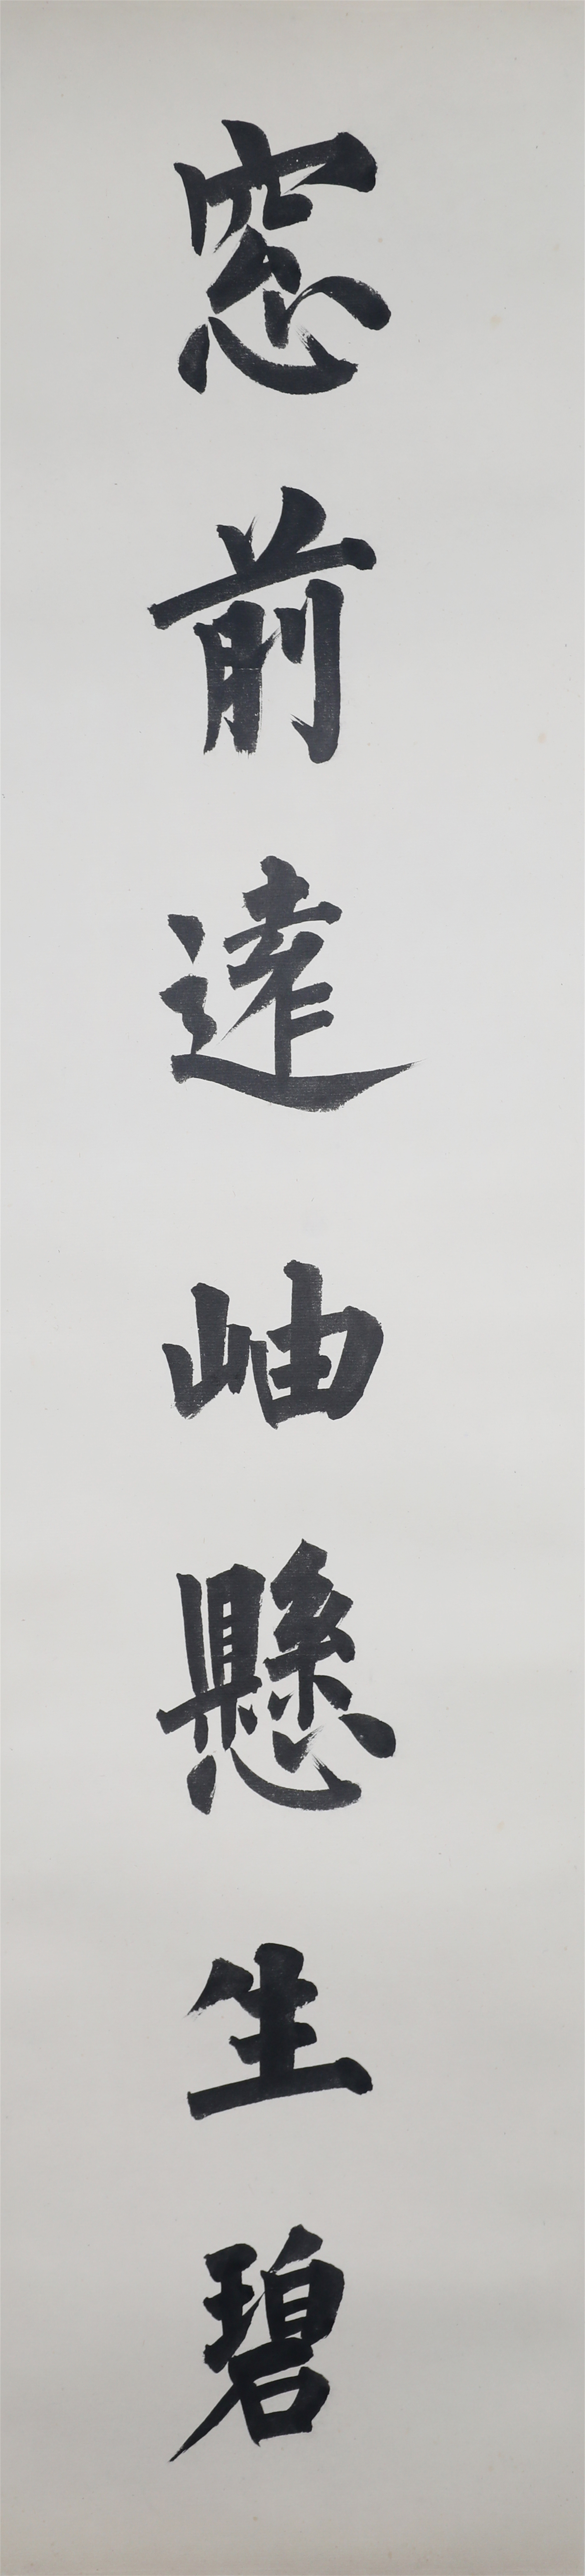 窓前遠岫懸生碧